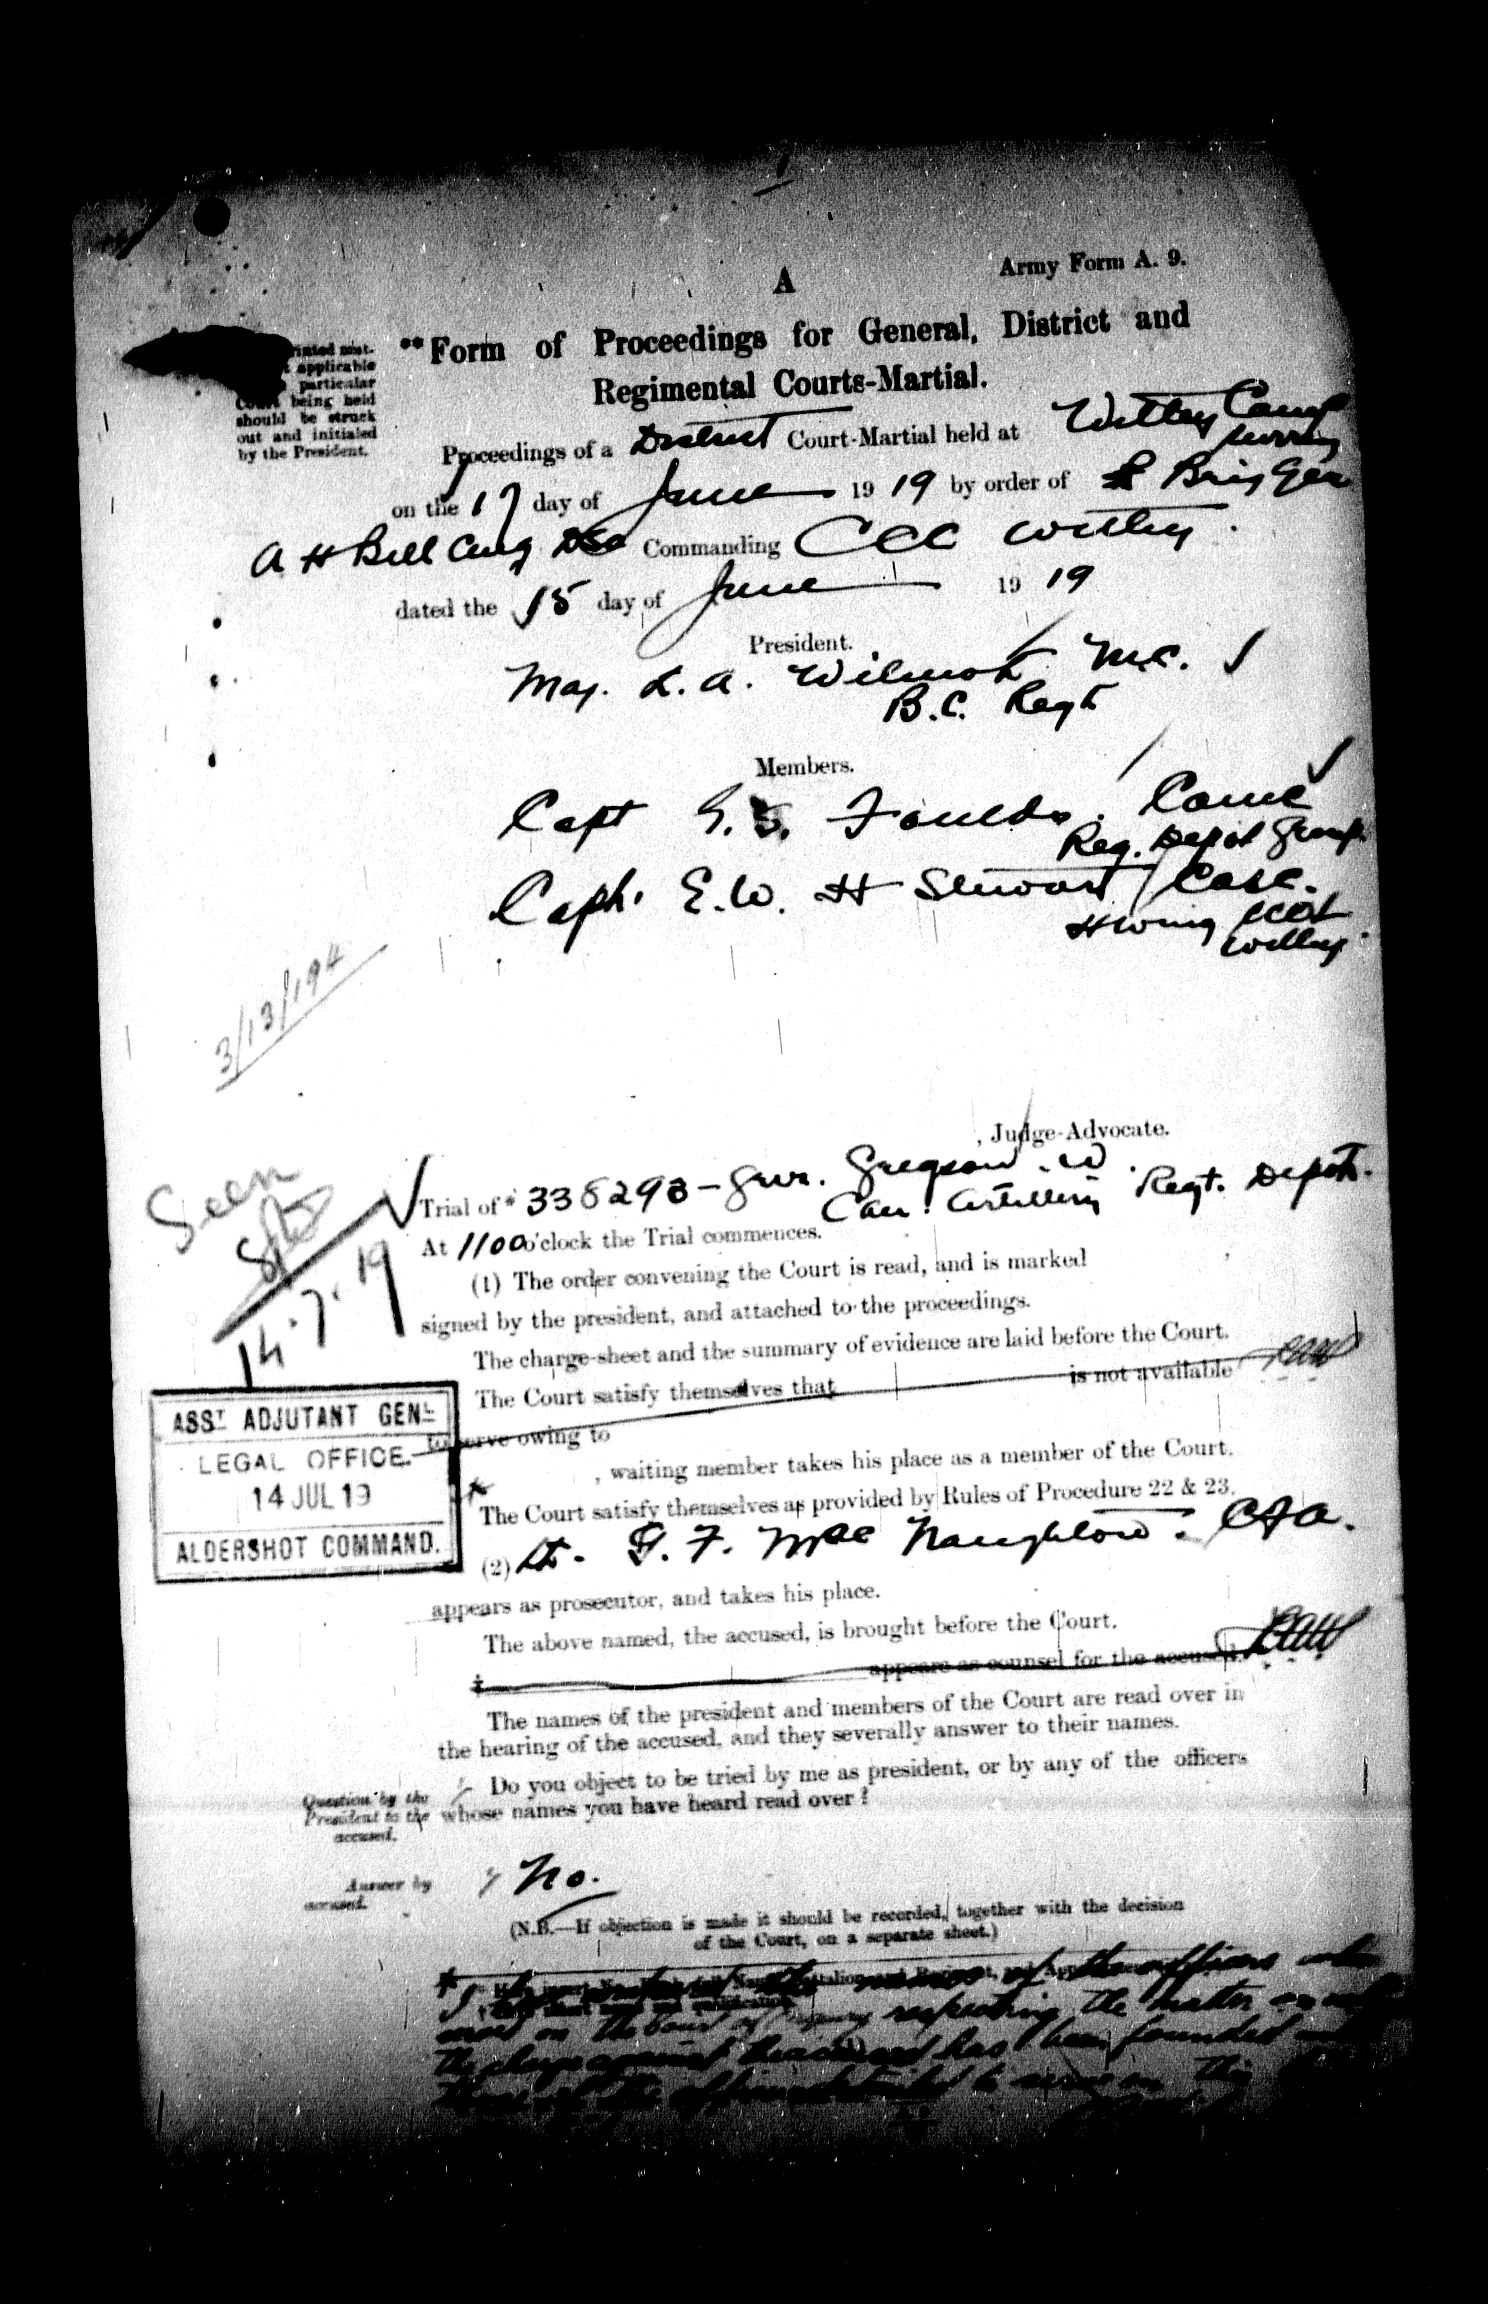 Army Form A. 9.
A
**Form of Proceedings for General, District and
Regimental Courts-Martial.
applicable
particular
Court being held
should be struck
out and initialed
by the President.
Proceedings of a District Court-Martial held at Witley Camp
Surrey
on the 17 day of June 19 19 by order of Brig Gen
A H Bell Cmg DSO Commanding CCC Witley.
dated the 15 day of June 19 19
President.
Maj. L. A. Wilmot M.C.
B.C. Regt
Members.
Capt Foulds.
Reg. Depot Group.
Capt. E. W. H Stewart CASC.
H Wing
Witley
3/13/194
, Judge-Advocate.
Seen
14.7.19
Trial of* 338293 - Gnr. Gregson. W.
Can. Artillery Regt. Depot.
At 1100 o'clock the Trial commences.
(1) The order convening the Court is read, and is marked
signed by the president, and attached to the proceedings.
The charge-sheet and the summary of evidence are laid before the Court.
The Court satisfy themselves that is not available LAW
to serve owing to
, waiting member takes his place as a member of the Court.
The Court satisfy themselves as provided by Rules of Procedure 22 & 23.
ASST ADJUTANT GENL
LEGAL OFFICE.
14 JUL 19
ALDERSHOT COMMAND.
(2) Lt. F. MacNaughton. CFA.
appears as prosecutor, and takes his place.
The above named, the accused, is brought before the Court.
‡ appears as counsel for the accused. LAW
The names of the president and members of the Court are read over in
the hearing of the accused, and they severally answer to their names.
Question by the
President to the
accused.
Do you object to be tried by me as president, or by any of the officers
whose names you have heard read over?
Answer by
accused.
No.
(N.B.—If objection is made it should be recorded, together with the decision
of the Court, on a separate sheet.)
of the officers who
respecting the matter on which
the charge against the accused has been founded and